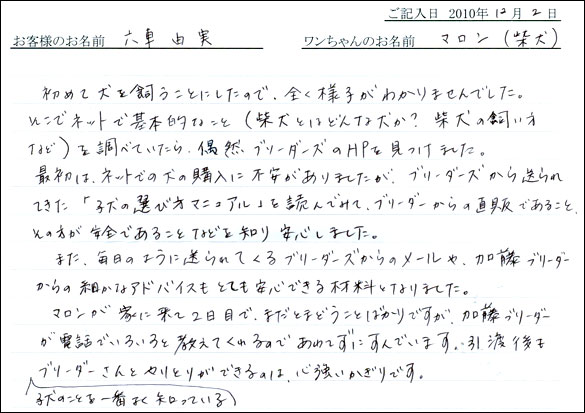 ご記入日 2010年 12月 2日
お客様のお名前 六車 由実 ワンちゃんのお名前 マロン (柴犬)
初めて犬を飼うことにしたので、全く様子がわかりませんでした。
そこでネットで基本的なこと (柴犬とはどんな犬か? 柴犬の飼い方
など) を調べていたら、偶然、ブリーダーズのHPを見つけました。
最初は、ネットでの犬の購入に不安がありましたが、ブリーダーズから送られ
てきた「子犬の選び方マニュアル」を読んでみて、ブリーダーからの直販であること、
その方が安全であることなどを知り安心しました。
また、毎日のように送られてくるブリーダーズからのメールや、加藤ブリーダー
からの細かなアドバイスもとても安心できる材料となりました。
マロンが家に来て2日目で、まだとまどうことばかりですが、加藤ブリーダー
が電話でいろいろと教えてくれるのであわてずにすんでいます。引渡後も
ブリーダーさんとやりとりができるのは、心強いかぎりです。
子犬のことを一番よく知っている